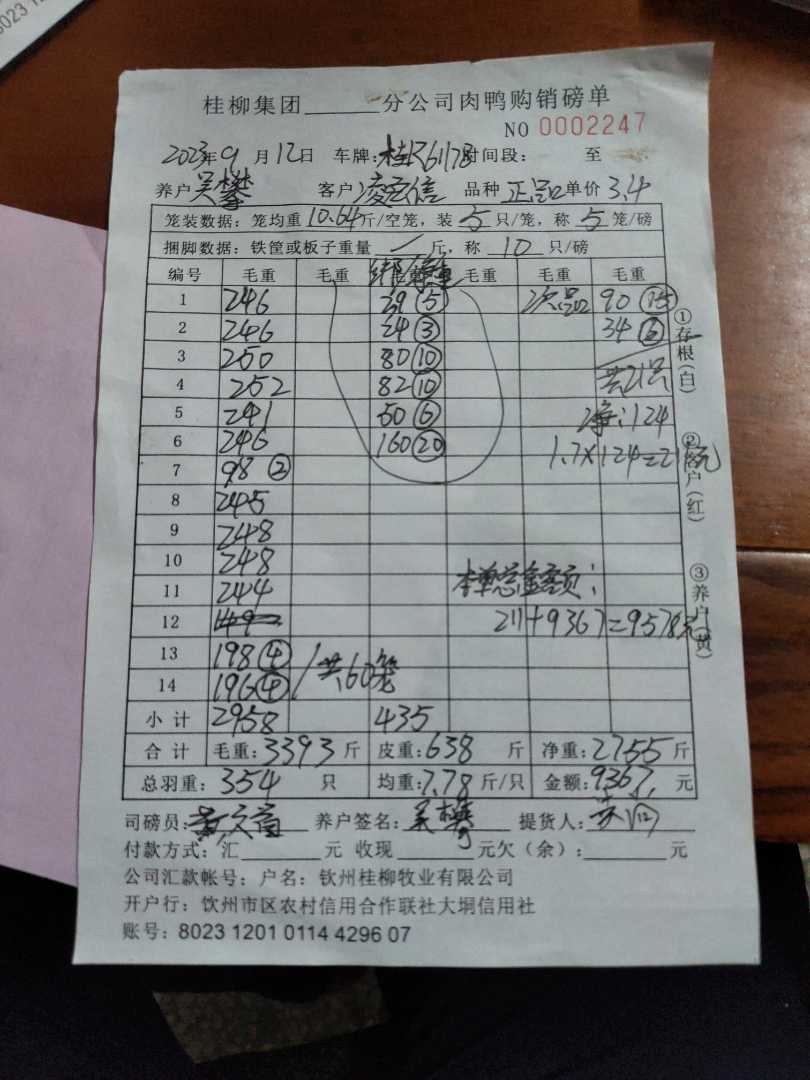 8023 12
桂柳集团______分公司肉鸭购销磅单
NO 0002247
2023年9月12日 车牌:桂R61178 时间段: 至
养户 吴攀 客户 凌宏信 品种 正品 单价 3.4
笼装数据:笼均重10.64斤/空笼,装5只/笼,称5笼/磅
捆脚数据:铁筐或板子重量 / 斤,称10只/磅
编号 毛重 毛重 毛重 毛重 毛重
1 246 29 ⑤ 次品 90 ⑮
2 246 24 ③ 34 ⑥
3 250 80 ⑩
4 252 82 ⑩ 共21只
5 241 50 ⑥ 净:124
6 246 160 ⑳ 1.7×124=211元
7 98 ②
8 245
9 248
10 248
11 244 本单总金额:
12 211+9367=9578元
13 198 ④ 共60笼
14 196 ④
小计 2958 435
合计 毛重:3393斤 皮重:638斤 净重:2755斤
总羽重:354只 均重:7.78斤/只 金额:9367.元
司磅员: 养户签名:吴攀 提货人:
付款方式:汇______元 收现______元欠(余):______元
公司汇款帐号:户名:钦州桂柳牧业有限公司
开户行:钦州市区农村信用合作联社大垌信用社
账号:8023 1201 0114 4296 07
①存根(白)
②客户(红)
③养户(黄)